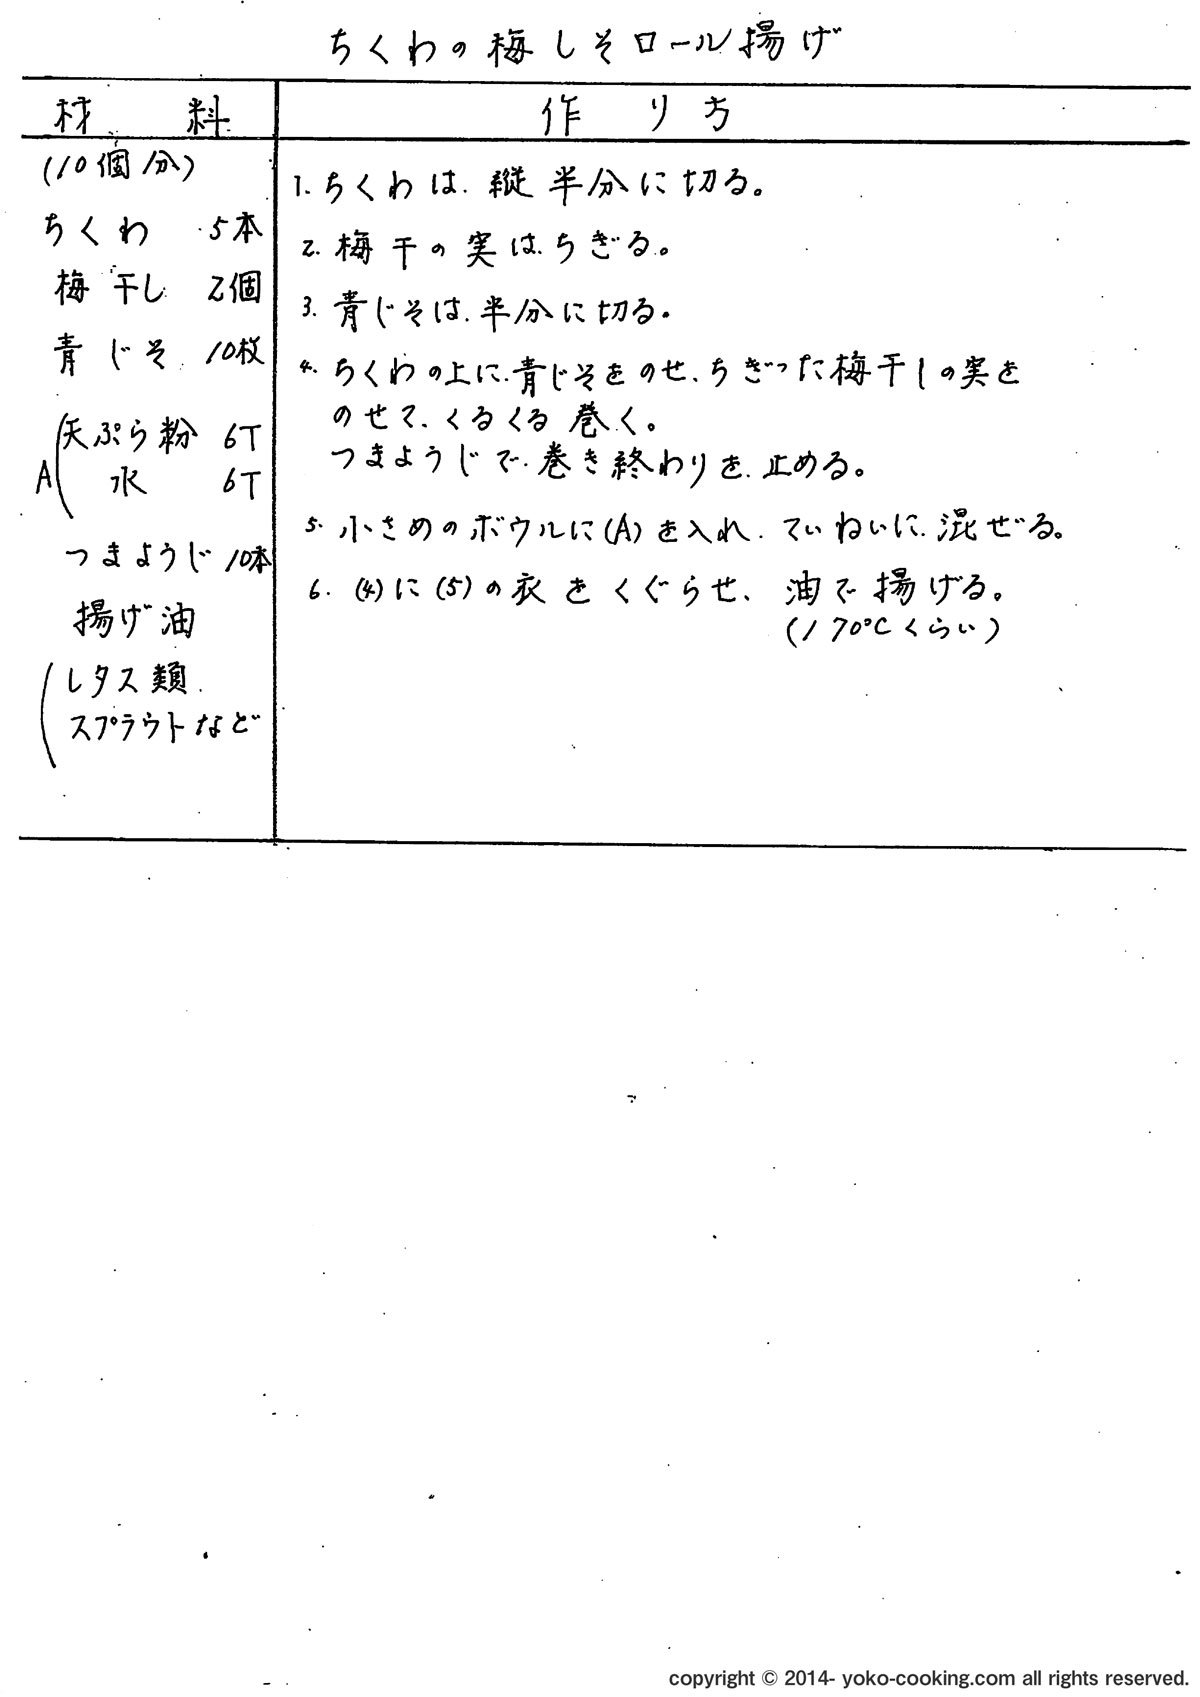 ちくわの梅しそロール揚げ
材料
作り方
(10個分)
ちくわ 5本
梅干し 2個
青じそ 10枚
A
天ぷら粉 6T
水 6T
つまようじ 10本
揚げ油
レタス類
スプラウトなど
1. ちくわは、縦半分に切る。
2. 梅干の実は、ちぎる。
3. 青じそは、半分に切る。
4. ちくわの上に、青じそをのせ、ちぎった梅干しの実を
のせて、くるくる巻く。
つまようじで、巻き終わりを、止める。
5. 小さめのボウルに(A)を入れ、ていねいに、混ぜる。
6. (4)に(5)の衣をくぐらせ、油で揚げる。
(170℃くらい)
copyright © 2014- yoko-cooking.com all rights reserved.